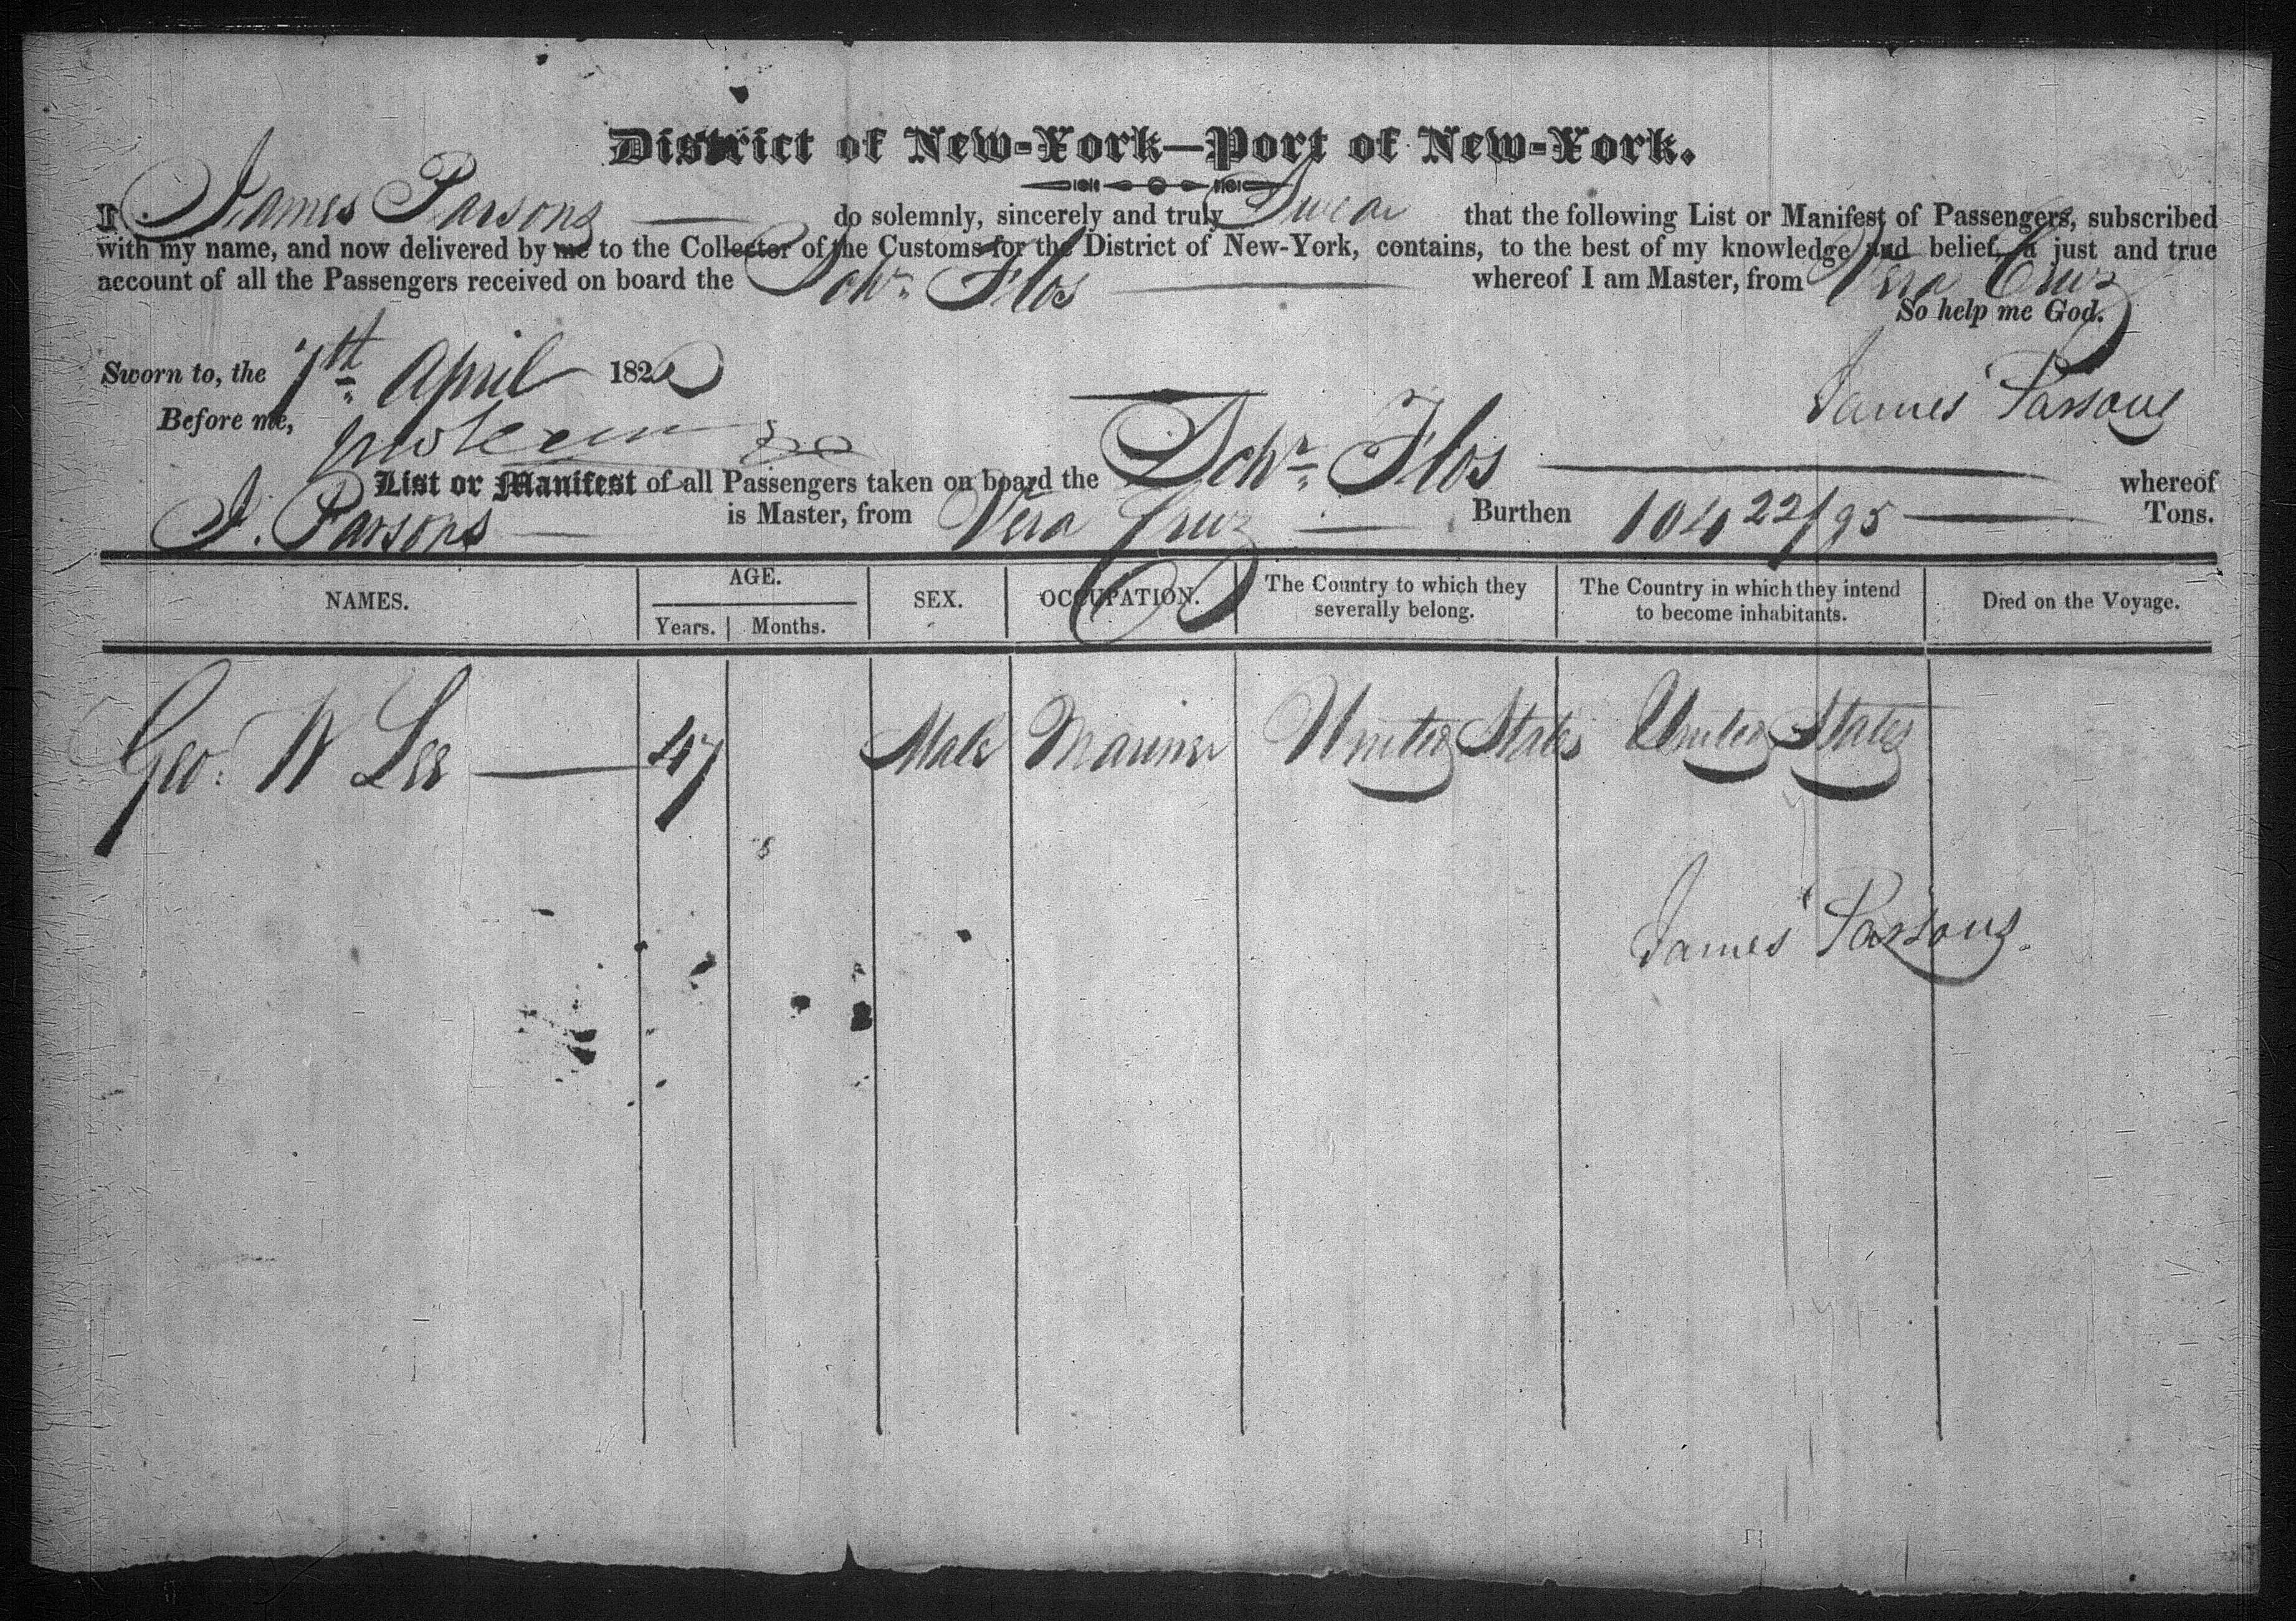 District of New-York—Port of New-York.
I James Parsons do solemnly, sincerely and truly Swear that the following List or Manifest of Passengers, subscribed
with my name, and now delivered by me to the Collector of the Customs for the District of New-York, contains, to the best of my knowledge and belief, a just and true
account of all the Passengers received on board the Schr. Flos whereof I am Master, from Vera Cruz
So help me God.
Sworn to, the 7th April 182
Before me,
James Parsons
List or Manifest of all Passengers taken on board the Schr. Flos whereof
J. Parsons is Master, from Vera Cruz Burthen 104 22/95 Tons.
NAMES. AGE. Years. Months. SEX. OCCUPATION. The Country to which they severally belong. The Country in which they intend to become inhabitants. Died on the Voyage.
Geo. W Lee 47 Male Mariner United States United States
James Parsons.